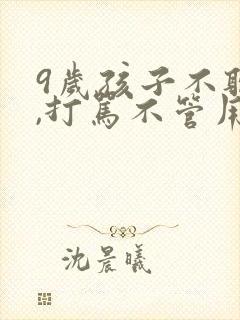 9歲孩子不
,打罵不管用
沈晨曦